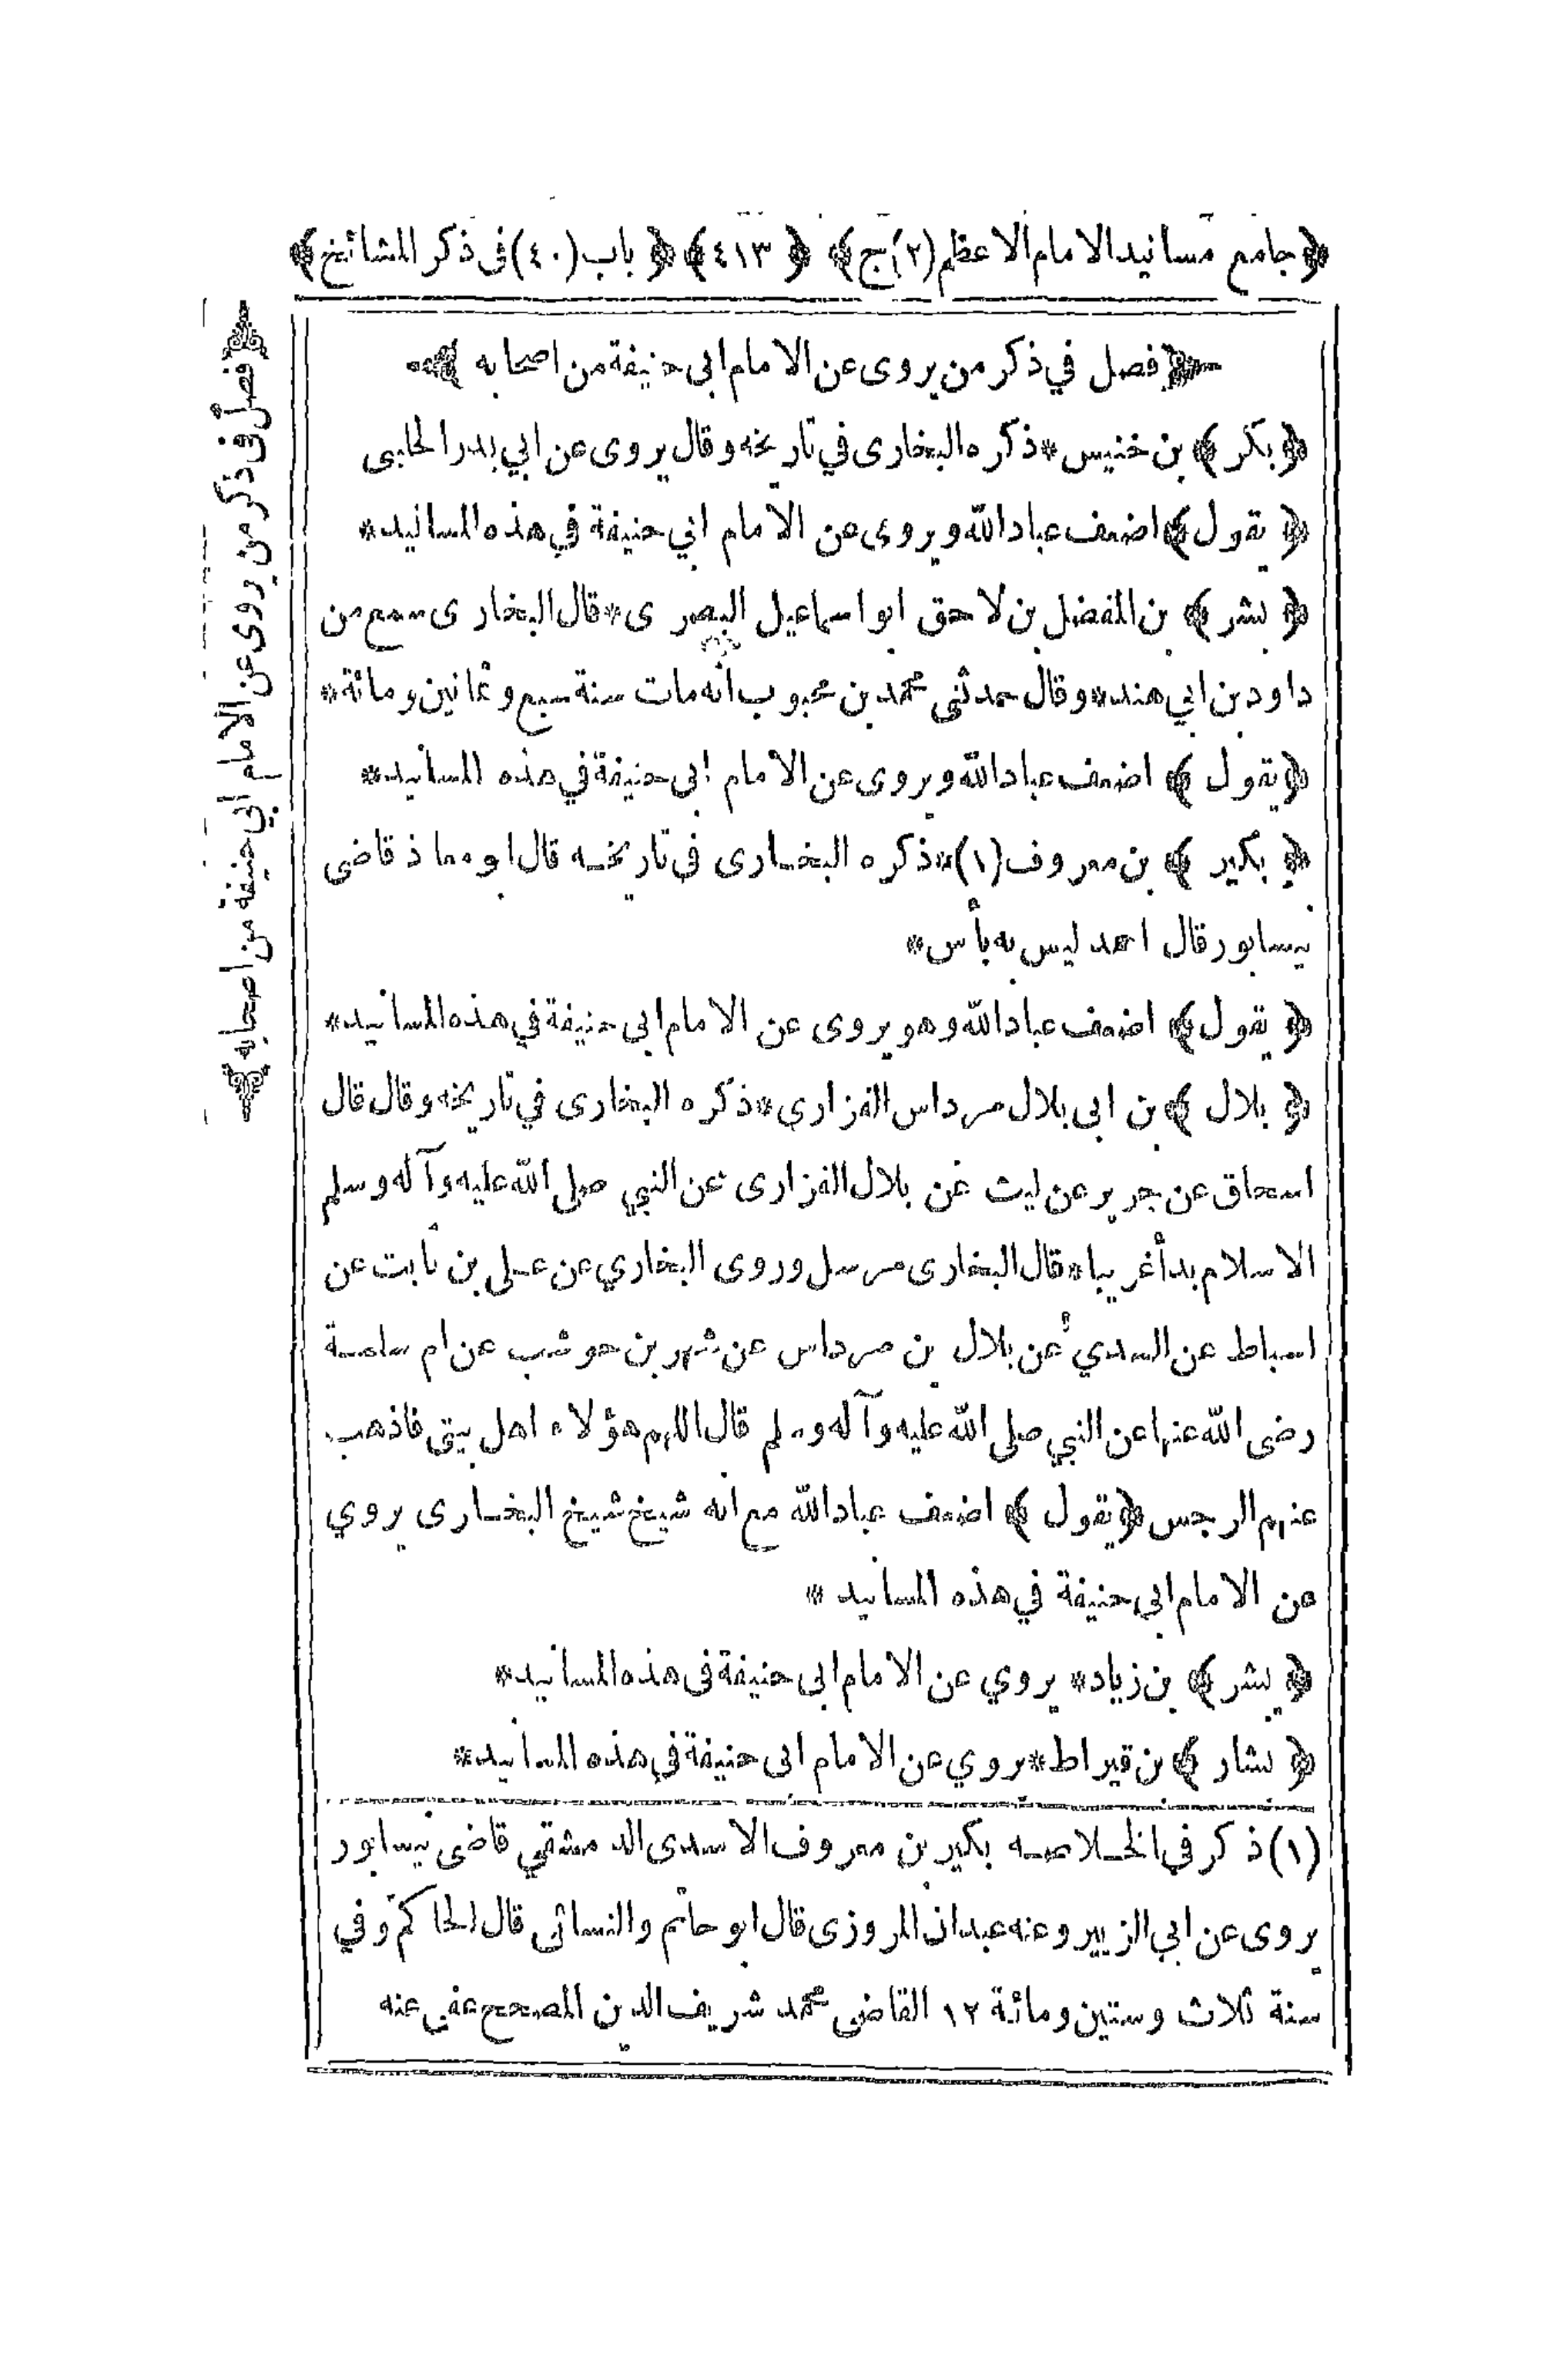 ﴿جامع مسانيد الامام الاعظم (٢) ج﴾ ﴿٤١٣﴾ ﴿باب (٤٠) فى ذكر المشائخ﴾
﴿فصل في ذكر من يروى عن الامام ابى حنيفة من اصحابه﴾
﴿بكر﴾ بن خنيس * ذكره البخارى في تاريخه وقال يروى عن ابي بدر الحلبى
﴿يقول﴾ اضعف عباد الله ويروى عن الامام ابي حنيفة في هذه المسانيد *
﴿بشر﴾ بن المفضل بن لاحق ابو اسماعيل البصرى * قال البخارى سمع من
داود بن ابي هند * وقال حدثنى محمد بن محبوب انه مات سنة سبع وثمانين ومائة *
﴿يقول﴾ اضعف عباد الله ويروى عن الامام ابى حنيفة في هذه المسانيد *
﴿بكير﴾ بن معروف (١) * ذكره البخارى فى تاريخه قال ابو معاذ قاضى
نيسابور قال احمد ليس به بأس *
﴿يقول﴾ اضعف عباد الله وهو يروى عن الامام ابى حنيفة في هذه المسانيد *
﴿بلال﴾ بن ابى بلال مرداس الفزارى * ذكره البخارى في تاريخه وقال قال
اسحاق عن جرير عن ليث عن بلال الفزارى عن النبي صلى الله عليه وآله وسلم
الاسلام بدأ غريبا * قال البخارى مرسل وروى البخاري عن على بن ثابت عن
اسباط عن السدي عن بلال بن مرداس عن شهر بن حوشب عن ام سلمة
رضى الله عنها عن النبي صلى الله عليه وآله وسلم قال اللهم هؤلاء اهل بيتى فاذهب
عنهم الرجس ﴿يقول﴾ اضعف عباد الله مع انه شيخ شيخ البخارى يروي
عن الامام ابى حنيفة في هذه المسانيد *
﴿بشر﴾ بن زياد * يروي عن الامام ابى حنيفة فى هذه المسانيد *
﴿بشار﴾ بن قيراط * يروي عن الامام ابى حنيفة في هذه المسانيد *
(١) ذكر في الخلاصه بكير بن معروف الاسدى الدمشقي قاضى نيسابور
يروى عن ابي الزبير وعنه عبدان المروزى قال ابو حاتم والنسائى قال الحاكم وفي
سنة ثلاث وستين ومائة ١٢ القاضى محمد شريف الدين المصحح عفى عنه
﴿فصل فى ذكر من يروى عن الامام ابي حنيفة من اصحابه﴾